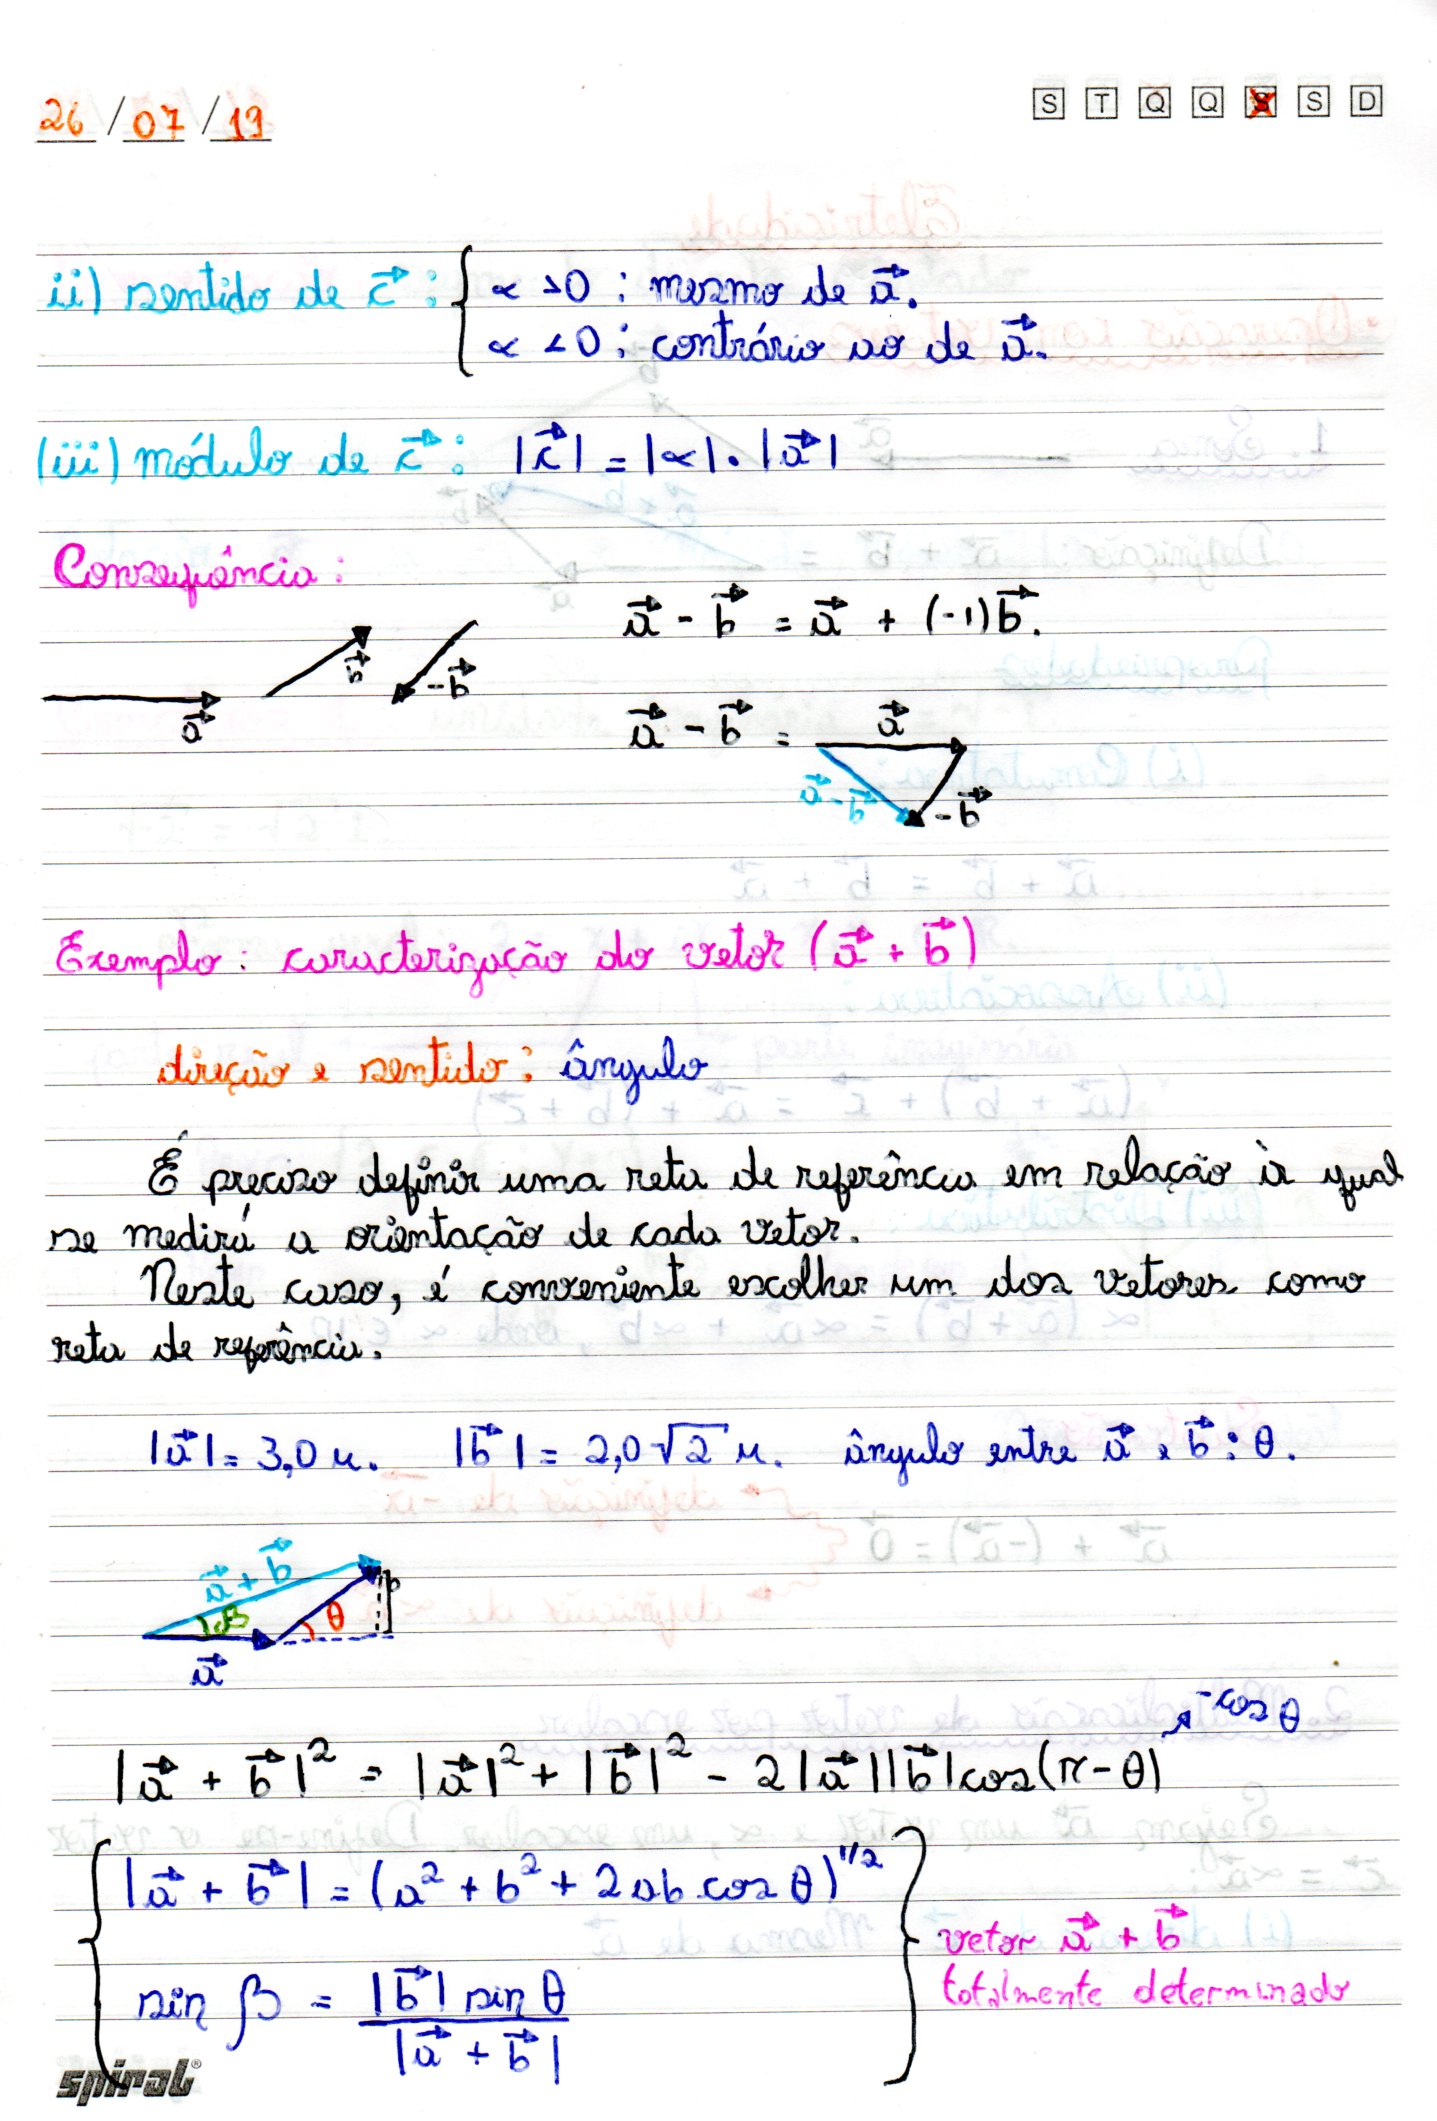 26 / 07 / 19
S T Q Q S S D
ii) sentido de c⃗ : { α > 0 : mesmo de a⃗.
α < 0 : contrário ao de a⃗.
(iii) módulo de c⃗ : |c⃗| = |α| . |a⃗|
Consequência :
a⃗ - b⃗ = a⃗ + (-1)b⃗.
a⃗ b⃗ -b⃗
a⃗ - b⃗ = a⃗
a⃗ - b⃗ -b⃗
Exemplo : caracterização do vetor (a⃗ + b⃗)
direção e sentido : ângulo
É preciso definir uma reta de referência em relação à qual
se medirá a orientação de cada vetor.
Neste caso, é conveniente escolher um dos vetores como
reta de referência.
|a⃗| = 3,0 u. |b⃗| = 2,0 √2 u. ângulo entre a⃗ e b⃗ : θ.
a⃗ + b⃗
β θ
a⃗
-cos θ
|a⃗ + b⃗|² = |a⃗|² + |b⃗|² - 2|a⃗||b⃗|cos(π - θ)
{ |a⃗ + b⃗| = (a² + b² + 2ab cos θ)^1/2 }
sin β = |b⃗| sin θ / |a⃗ + b⃗|
vetor a⃗ + b⃗
totalmente determinado
spiral®